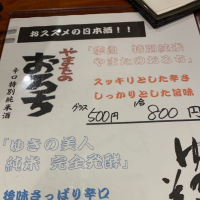 おススメの日本酒!!
やまたの
おろち
辛口特別純米酒
「辛口 特別純米
やまたのおろち」
スッキリとした辛さ
しっかりとした旨味
グラス 500円 1合 800円
「ゆきの美人
純米 完全発酵」
後味さっぱり辛口
ゆき